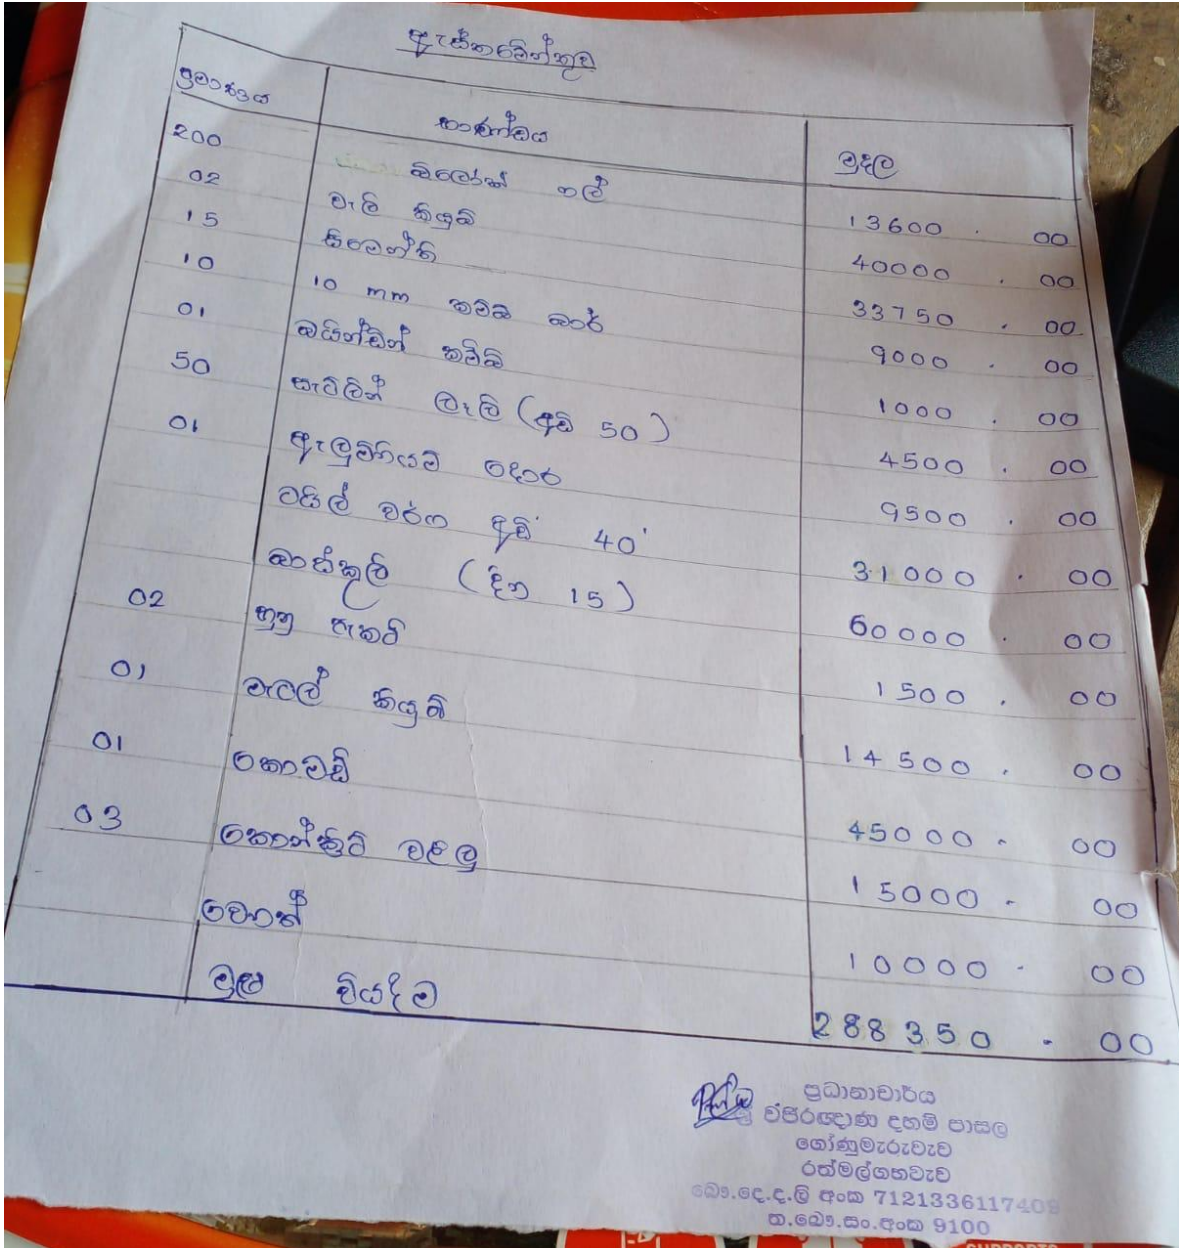 ඇස්තමේන්තුව
ප්‍රමාණය භාණ්ඩය මුදල
200 බ්ලොක් ගල් 13600.00
02 වැලි කියුබ් 40000.00
15 සිමෙන්ති 33750.00
10 10 mm කම්බි බාර් 9000.00
01 බයින්ඩින් කම්බි 1000.00
50 සැට්ලින් ලෑලි (අඩි 50) 4500.00
01 ඇලුමිනියම් දොර 9500.00
ටයිල් වර්ග අඩි 40' 31000.00
බාස්කුලි (දින 15) 60000.00
02 හුනු පැකට් 1500.00
01 මැටල් කියුබ් 14500.00
01 කොමඩ් 45000.00
03 කොන්ක්‍රීට් වළලු 15000.00
වෙනත් 10000.00
මුළු වියදම 288350.00
ප්‍රධානාචාර්ය
වජිරඥාණ දහම් පාසල
ගෝණුමැරුවැව
රත්මල්ගහවැව
බෞ.දෙ.ද.ලි අංක 7121336117409
ත.බෞ.සං.අංක 9100